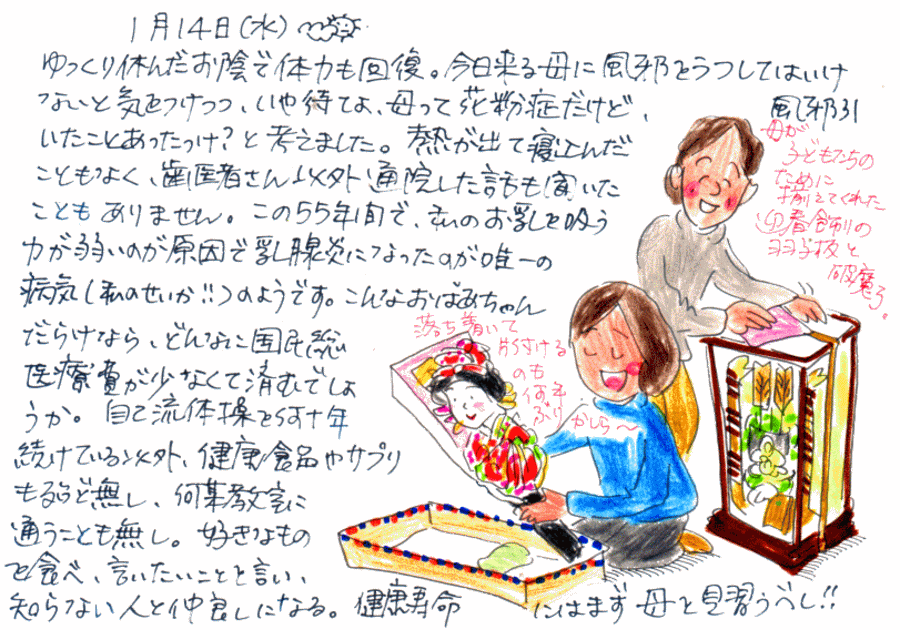 1月14日(水)
ゆっくり休んだお陰で体力も回復。今日来る母に風邪をうつしてはいけ
ないと気をつけつつ、いや待てよ、母って花粉症だけど、風邪引
いたことあったっけ?と考えました。熱が出て寝込んだ
こともなく、歯医者さん以外通院した話も聞いた
こともありません。この55年間で、私のお乳を吸う
力が弱いのが原因で乳腺炎になったのが唯一の
病気(私のせいか!!)のようです。こんなおばあちゃん
だらけなら、どんなに国民総
医療費が少なくて済むでしょ
うか。自己流体操を何十年
続けている以外、健康食品やサプリ
もほとんど無し、何某教室に
通うことも無し。好きなもの
を食べ、言いたいことを言い、
知らない人と仲良しになる。健康寿命にはまず母を見習うべし!!
母が
子どもたちの
ために
揃えてくれた
迎春飾りの
羽子板と
破魔弓。
落ち着いて
片付ける
のも
何年
ぶり
かしら〜